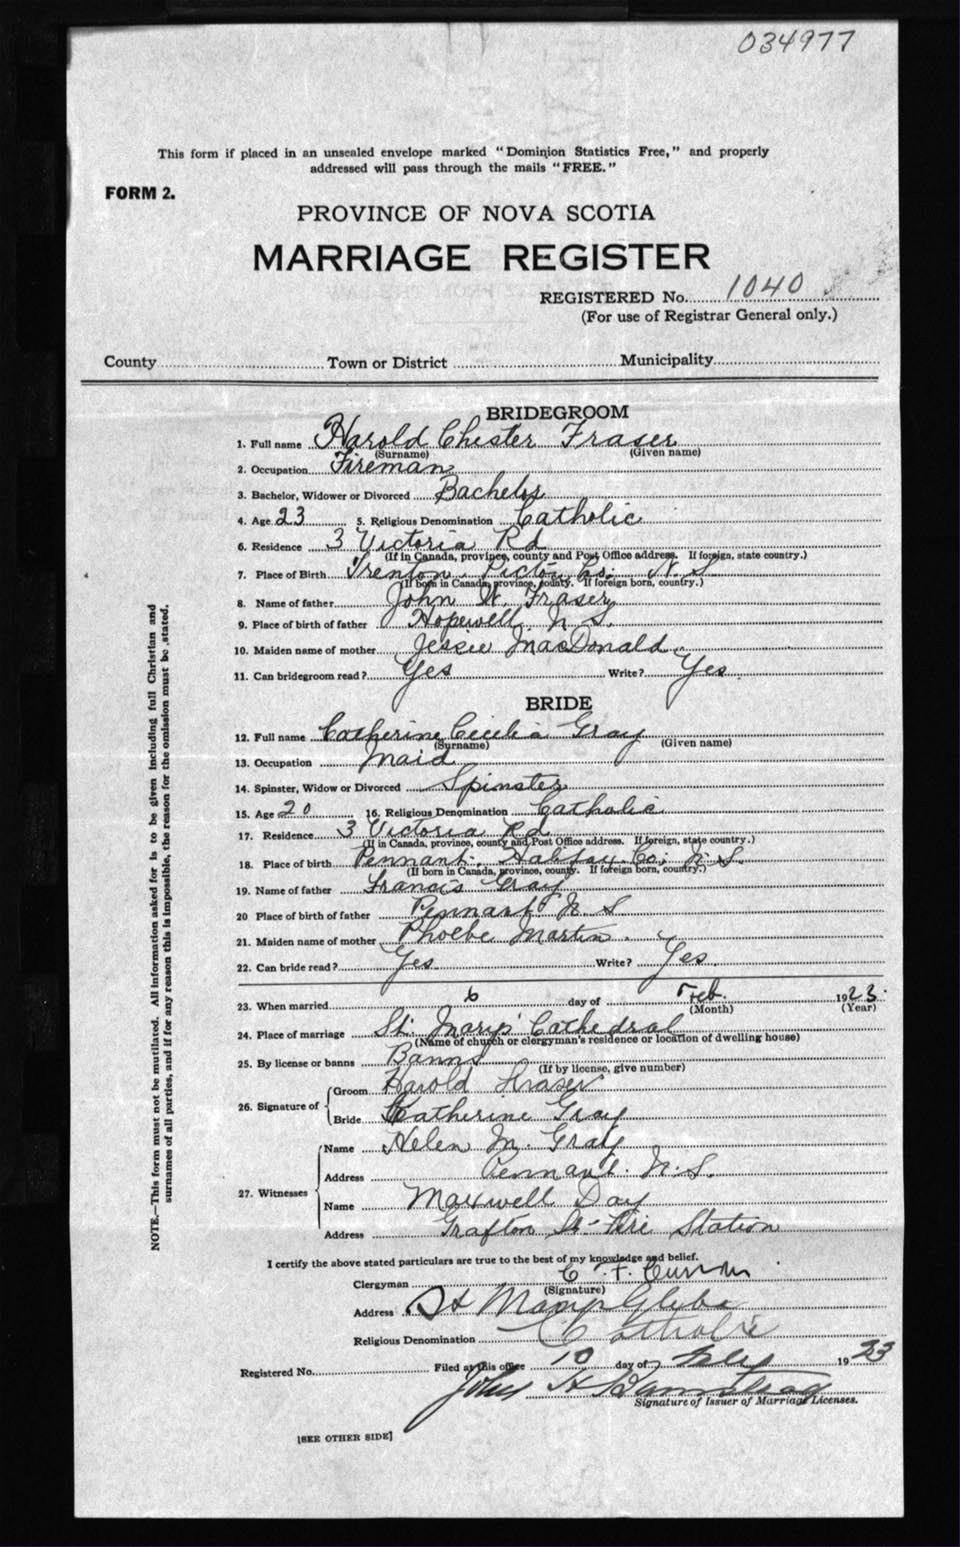 034977
This form if placed in an unsealed envelope marked "Dominion Statistics Free," and properly
addressed will pass through the mails "FREE."
FORM 2.
PROVINCE OF NOVA SCOTIA
MARRIAGE REGISTER
REGISTERED No. 1040
(For use of Registrar General only.)
County Town or District Municipality
BRIDEGROOM
1. Full name Harold Chester Fraser
(Surname) (Given name)
2. Occupation Fireman
3. Bachelor, Widower or Divorced Bachelor
4. Age 23 5. Religious Denomination Catholic
6. Residence 3 Victoria Rd
(If in Canada, province, county and Post Office address. If foreign, state country.)
7. Place of Birth Trenton Pictou Co; N.S
(If born in Canada, province, county. If foreign born, country.)
8. Name of father John W. Fraser
9. Place of birth of father Hopewell N.S.
10. Maiden name of mother Jessie MacDonald
11. Can bridegroom read? Yes Write? Yes
BRIDE
12. Full name Catherine Cecilia Gray
(Surname) (Given name)
13. Occupation Maid
14. Spinster, Widow or Divorced Spinster
15. Age 20 16. Religious Denomination Catholic
17. Residence 3 Victoria Rd
(If in Canada, province, county and Post Office address. If foreign, state country.)
18. Place of birth Pennant Halifax Co; N.S.
(If born in Canada, province, county. If foreign born, country.)
19. Name of father Francis Gray
20 Place of birth of father Pennant N.S
21. Maiden name of mother Phoebe Martin
22. Can bride read? Yes Write? Yes.
23. When married 6 day of Feb. 1923.
(Month) (Year)
24. Place of marriage St. Marys' Cathedral
(Name of church or clergyman's residence or location of dwelling house)
25. By license or banns Banns
(If by license, give number)
26. Signature of Groom Harold Fraser
Bride Katherine Gray
27. Witnesses Name Helen M. Gray
Address Pennant. N.S.
Name Maxwell Day
Address Grafton St. Fire Station
I certify the above stated particulars are true to the best of my knowledge and belief.
Clergyman C. F. Curran
(Signature)
Address St Marys Glebe
Religious Denomination Catholic
Registered No. Filed at this office 10 day of 1923
John H
Signature of Issuer of Marriage Licenses.
[SEE OTHER SIDE]
NOTE.—This form must not be mutilated. All information asked for is to be given including full Christian and
surnames of all parties, and if for any reason this is impossible, the reason for the omission must be stated.